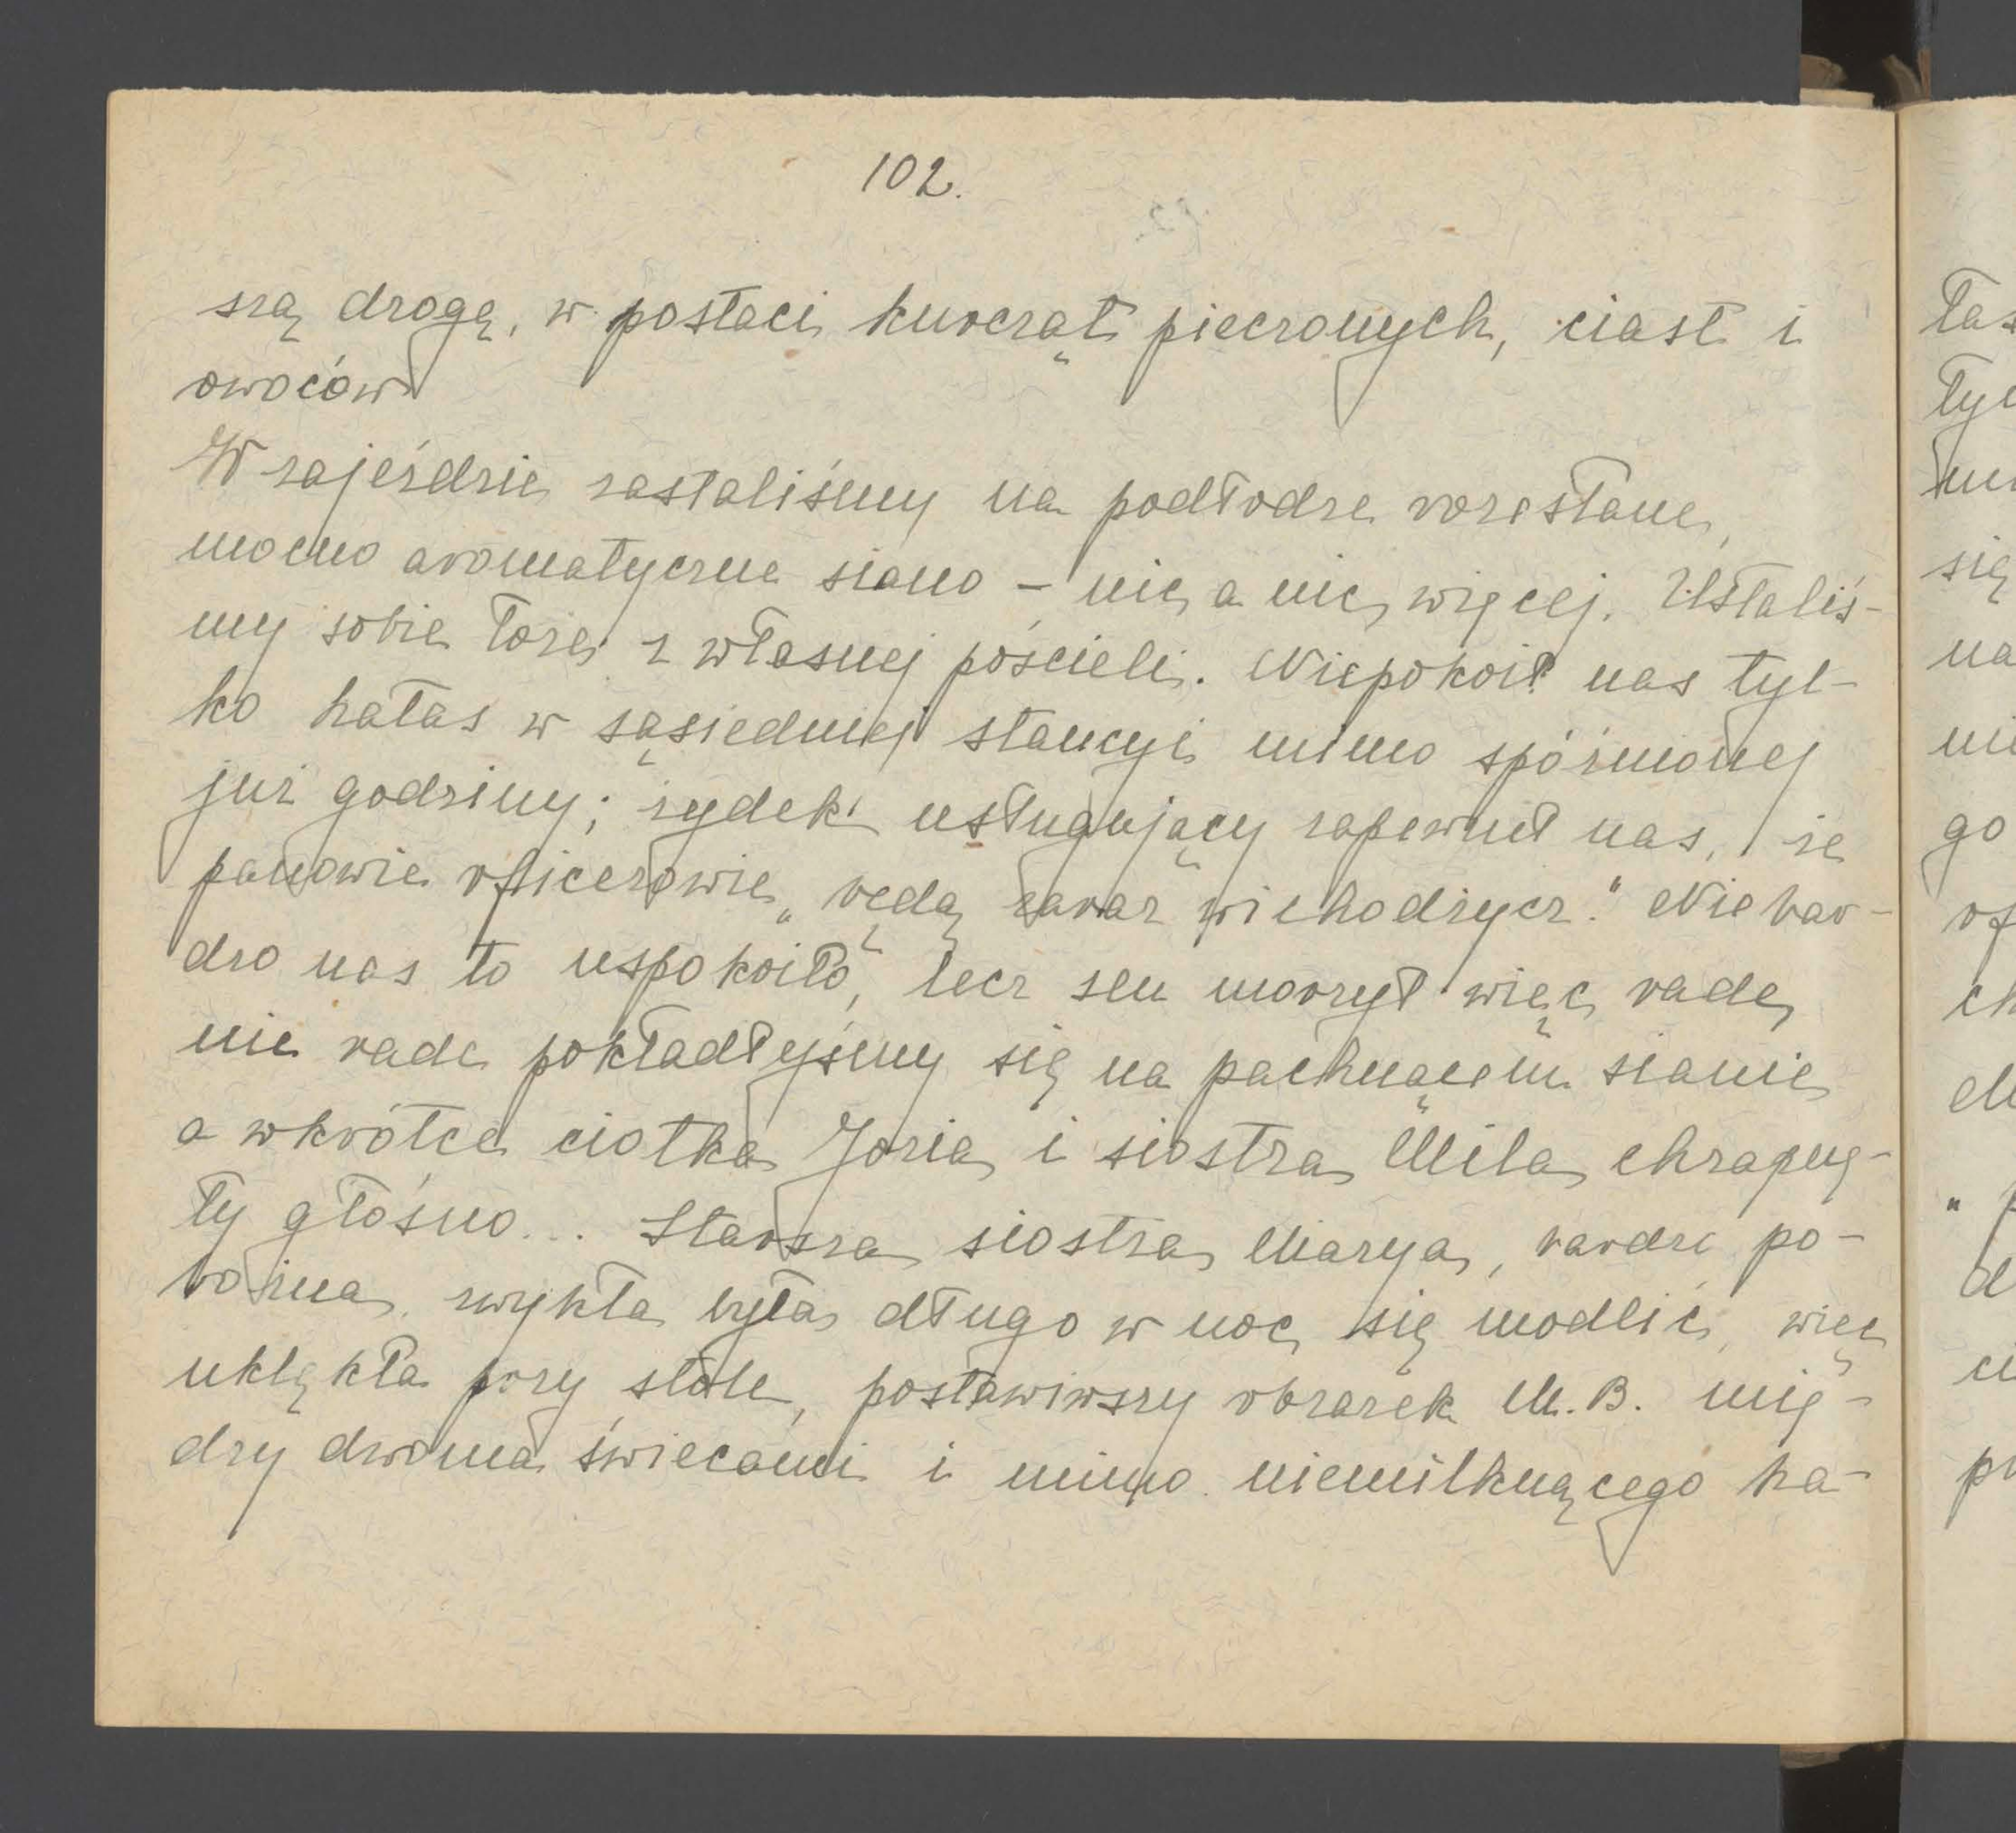 102.
szą drogę, w postaci kurcząt pieczonych, ciast i
owoców
W zajeździe zastaliśmy na podłodze rozesłane,
mocno aromatyczne siano – nic a nic więcej. Usłaliś-
my sobie łoże z własnej pościeli. Niepokoił nas tyl-
ko hałas w sąsiedniej stancyi mimo spóźnionej
już godziny; żydek usługujący zapewnił nas, że
panowie oficerowie „ będą zaraz wichodzycz." Nie bar-
dzo nas to uspokoiło, lecz sen morzył więc rade
nie rade pokładłyśmy się na pachnącem sianie
a wkrótce ciotka Józia i siostra Mila chrapnę-
ły głośno... Starsza siostra Marya, bardzo po-
bożna, zwykła była długo w noc się modlić, więc
uklękła przy stole, postawiwszy obrazek M.B. mię-
dzy dwoma świecami i mimo niemilknącego ha-
łas
tyl
się
na
go
of
ch